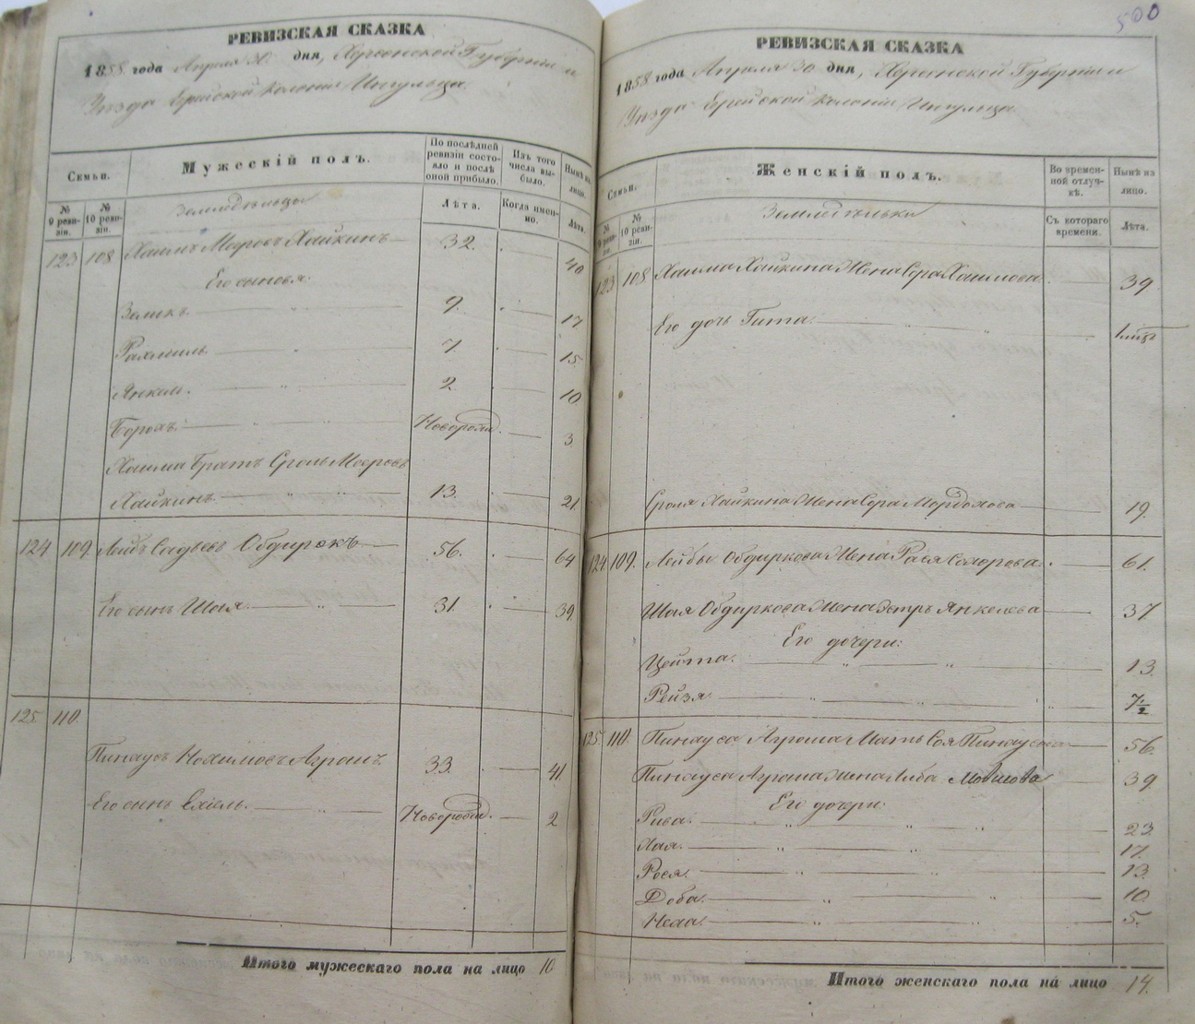 РЕВИЗСКАЯ СКАЗКА
1858 года Апреля 30 дня, Херсонской Губерніи и
Уезда Еврейской колоніи Ингульца.
Семьи.
Мужескій полъ.
По послѣдней ревизіи состояло и послѣ оной прибыло.
Изъ того числа выбыло.
Нынѣ на лицо.
№ 9 ревизіи.
№ 10 ревизіи.
Земледѣльцы
Лѣта.
Когда именно.
Лѣта.
123 108 Хаимъ Меровъ Хайкинъ 32. 40
Его сыновья:
Зеликъ. 9. 17
Рахмиль 7. 15
Янкель. 2. 10
Борохъ. Новорожд. 3
Хаима братъ Сроль Меровъ
Хайкинъ 13. 21
124 109. Лейбъ Обдирокъ 56. 64
Его сынъ Шая 31 39
125 110.
Пинхусъ Нохимовъ Агронъ. 33. 41
Его сынъ Ехіель. Новорожд. 2
Итого мужескаго пола на лицо 10
500
РЕВИЗСКАЯ СКАЗКА
1858 года Апреля 30 дня, Херсонской Губерніи и
Уезда Еврейской колоніи Ингульца
Семьи.
Женскій полъ.
Во временной отлучкѣ.
Нынѣ на лицо.
№ 9 ревизіи.
№ 10 ревизіи.
Земледѣльки
Съ котораго времени.
Лѣта.
123 108 Хаима Хайкина жена Сора Хаимова 39
Его дочь Гита.
Сроля Хайкина жена Сора Мордохова 19.
124 109. Лейбы Обдиркова жена Рася 61.
Шая Обдиркова жена Эстръ Янкелева 37
Его дочери:
Цейта. 13.
Рейзя 7½
125 110 Пинхуса Агрона мать Соя Пинхусова 56.
Пинхуса Агрона жена Либа Мовшова 39
Его дочери:
Рива. 23
Хая. 17.
Рося. 13.
Доба. 10
Неха. 5.
Итого женскаго пола на лицо 14.